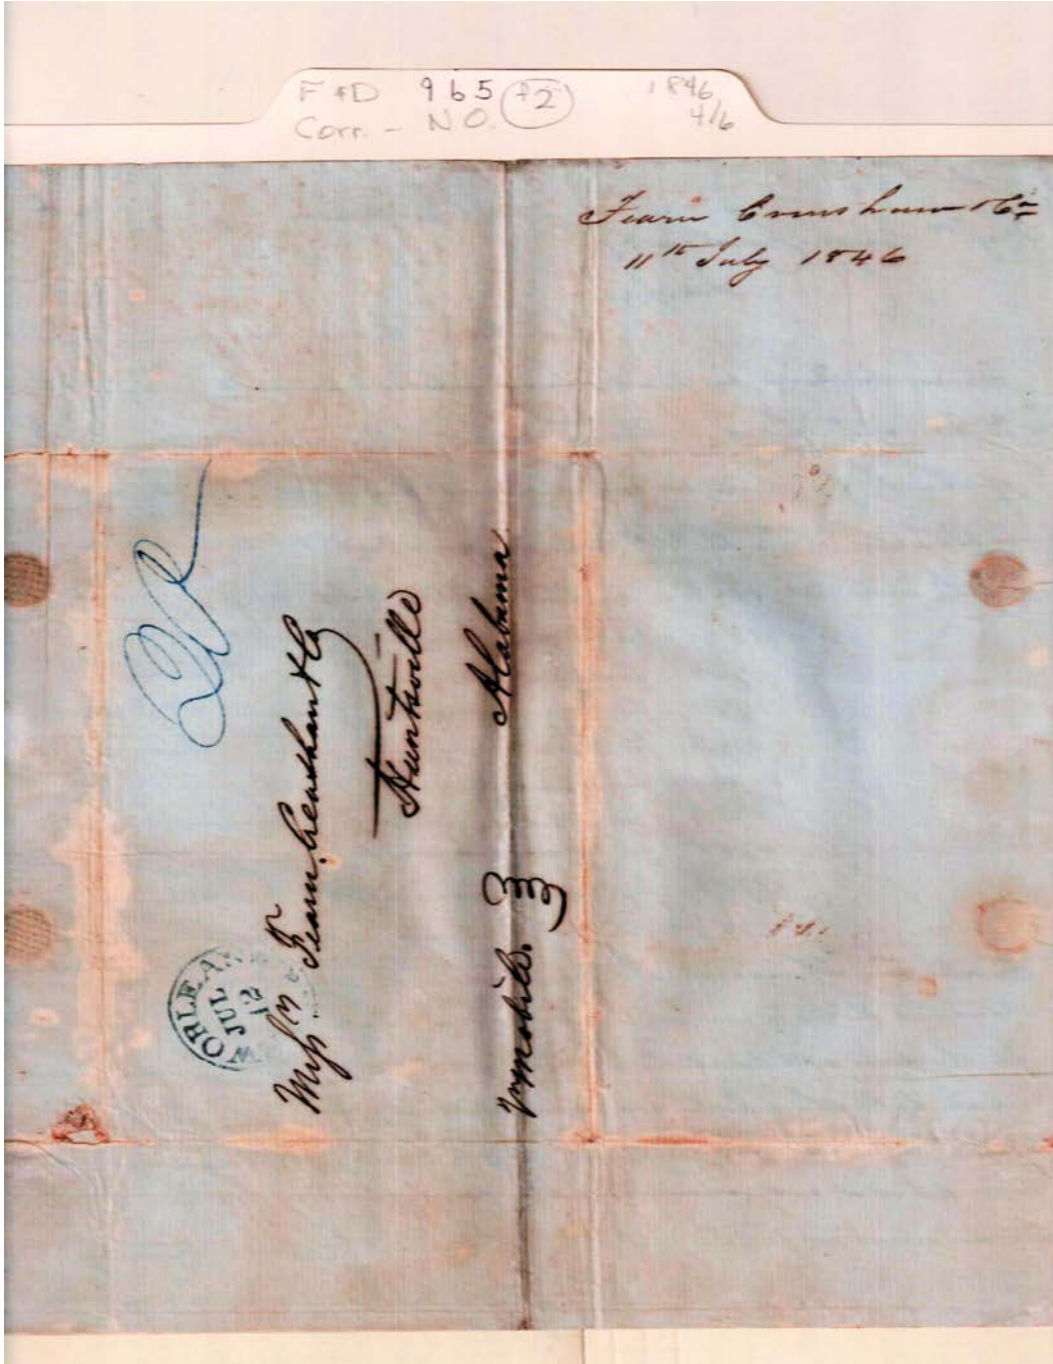 F & D 965 +2 1846
Corr. - N O. 4/6
Fearn Crenshaw & Co
11th July 1846
W ORLEAN
JUL
12
Messrs Fearn, Cheatham & Co
Huntsville
Alabama